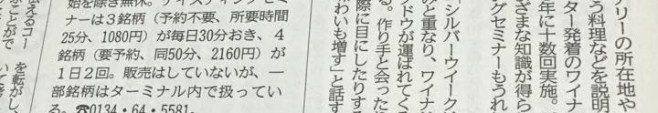 フリーの所在地や
う料理などを説明
ター発着のワイナ
年に十数回実施。
ざまな知識が得ら
グセミナーもうれ
シルバーウイークは
み重なり、ワイナ
ドウが運ばれてく
る。作り手と会ったり
際に目にしたりする
わいも増す」と話す
始を除き無休。テイスティングセミ
ナーは3銘柄（予約不要、所要時間
25分、1080円）が毎日30分おき、4
銘柄（要予約、同50分、2160円）が
1日2回。販売はしていないが、一
部銘柄はターミナル内で扱ってい
る。☎0134・64・5581。
伝えるコー
ことがで
を転がし、